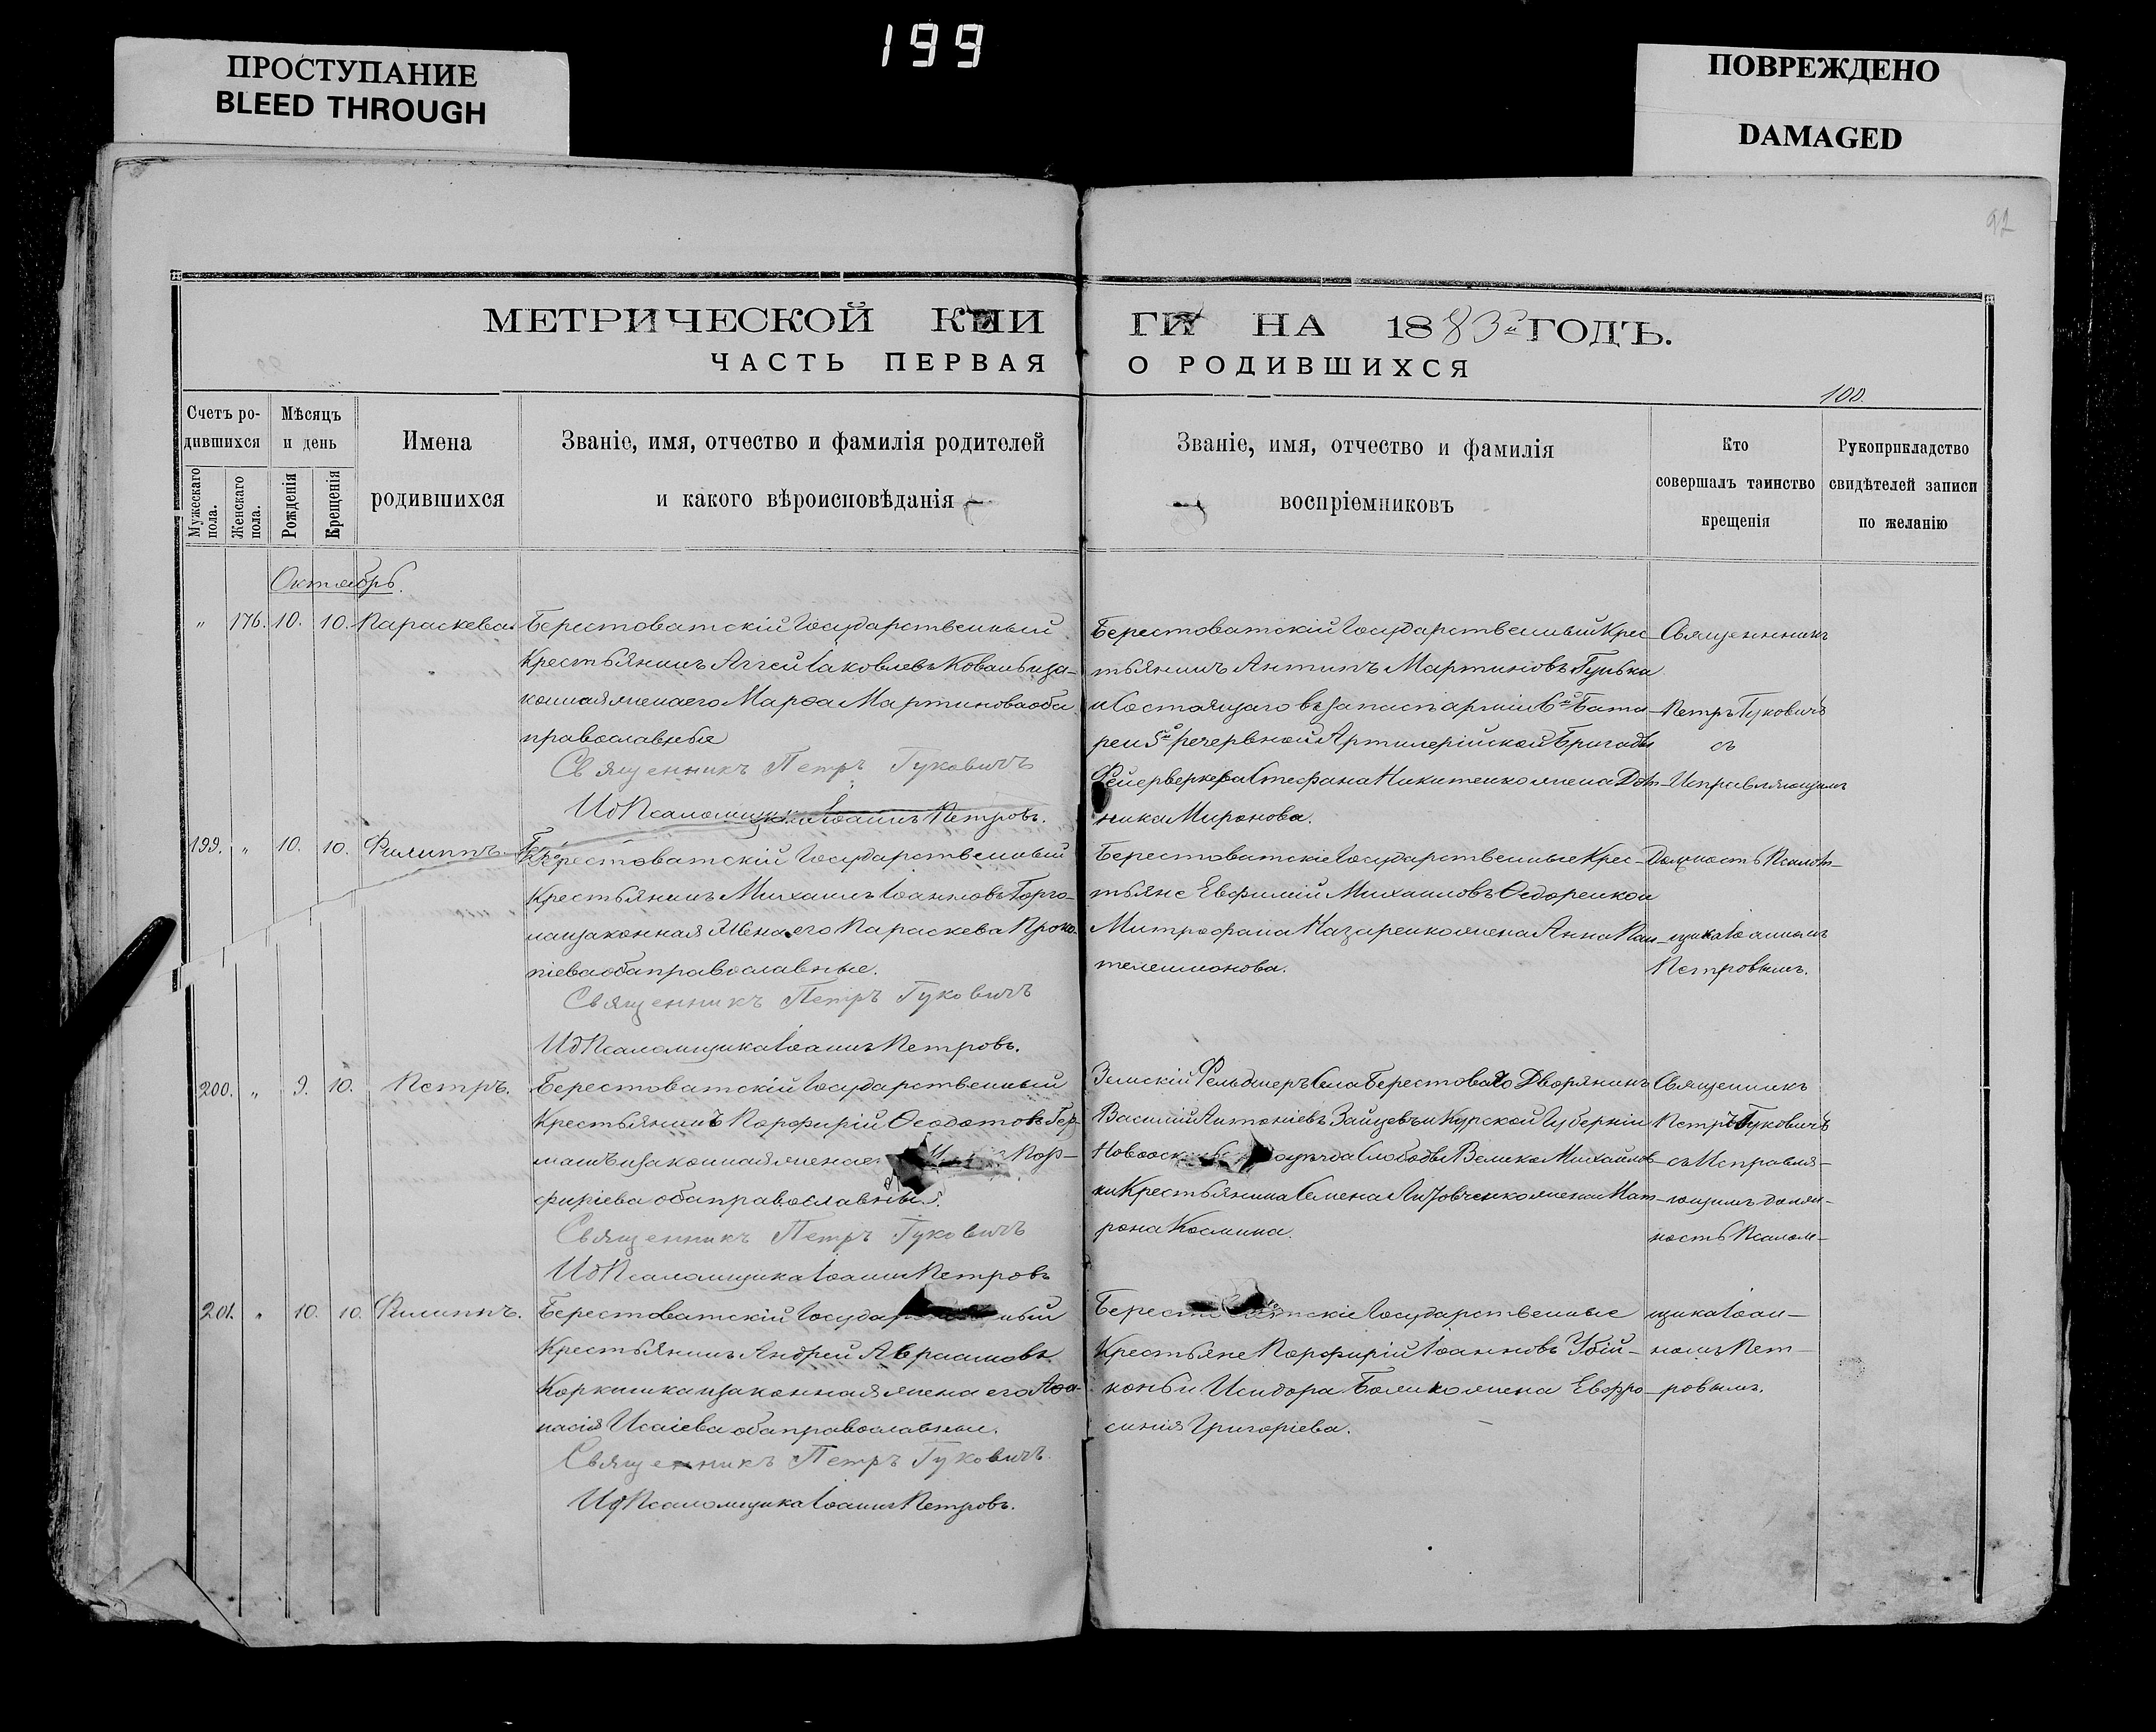 199
ПРОСТУПАНИЕ
BLEED THROUGH
ПОВРЕЖДЕНО
DAMAGED
92
МЕТРИЧЕСКОЙ КНИ
ГИ НА 1883й ГОДЪ.
ЧАСТЬ ПЕРВАЯ
О РОДИВШИХСЯ
100.
Счетъ ро-
дившихся
Мужескаго пола.
Женскаго пола.
Мѣсяцъ
и день
Рожденія
Крещенія
Имена
родившихся
Званіе, имя, отчество и фамилія родителей
и какого вѣроисповѣданія
Званіе, имя, отчество и фамилія
воспріемниковъ
Кто
совершалъ таинство
крещенія
Рукоприкладство
свидѣтелей записи
по желанію
Октябрь.
" 176. 10. 10. Параскева.
Берестоватскій Государственный
Крестьянинъ Аггей Іаковлевъ Коваль и за-
конная жена его Марѳа Мартинова оба
православные
Священникъ Петръ Гуковичъ
И д Псаломщика Іоаннъ Петровъ.
Берестоватскій Государственный Крес-
тьянинъ Антипъ Мартиновъ Гулька
и Состоящаго въ запасѣ арміи 6й Бата-
реи 5й резервной Артилерійской Бригады
Фейерверкера Стефана Никитенко жена Дом-
ника Миронова.
Священникъ
Петръ Гуковичъ
съ
Исправляющимъ
199. " 10. 10. Филиппъ.
Берестоватскій Государственный
Крестьянинъ Михаилъ Іоанновъ Горго-
и законная жена его Параскева Проко-
піева оба православные.
Священникъ Петръ Гуковичъ
И д Псаломщика Іоаннъ Петровъ.
Берестоватскіе Государственные Крес-
тьяне Евфимій Михаиловъ Ѳедоренко и
Митрофана Назаренко жена Анна Пан-
телеимонова.
Должность Псалом-
щика Іоанномъ
Петровымъ.
200. " 9. 10. Петръ.
Берестоватскій Государственный
Крестьянинъ Порфирій Ѳеодотовъ Гер-
манъ и законная жена его Пор-
фиріева оба православные.
Священникъ Петръ Гуковичъ
И д Псаломщика Іоаннъ Петровъ
Земскій Фельдшеръ Села Берестоваго Дворянинъ
Василій Антоніевъ Зайцевъ и Курской Губерніи
уѣзда Слободы Велико Михайлов-
ки Крестьянина Семена жена Мат-
рона Космина.
Священникъ
Петръ Гуковичъ
съ Исправля-
ющимъ долж-
ность Псалом-
201. " 10. 10. Филиппъ.
Берестоватскій
Крестьянинъ Андрей Авраамовъ
и законная жена его Аѳа-
насія Исаіева оба православные.
Священникъ Петръ Гуковичъ
И д Псаломщика Іоаннъ Петровъ.
Государственные
Крестьяне Порфирій Іоанновъ Убій-
конь и Исидора жена Евфро-
синія Григоріева.
щика Іоан-
номъ Пет-
ровымъ.